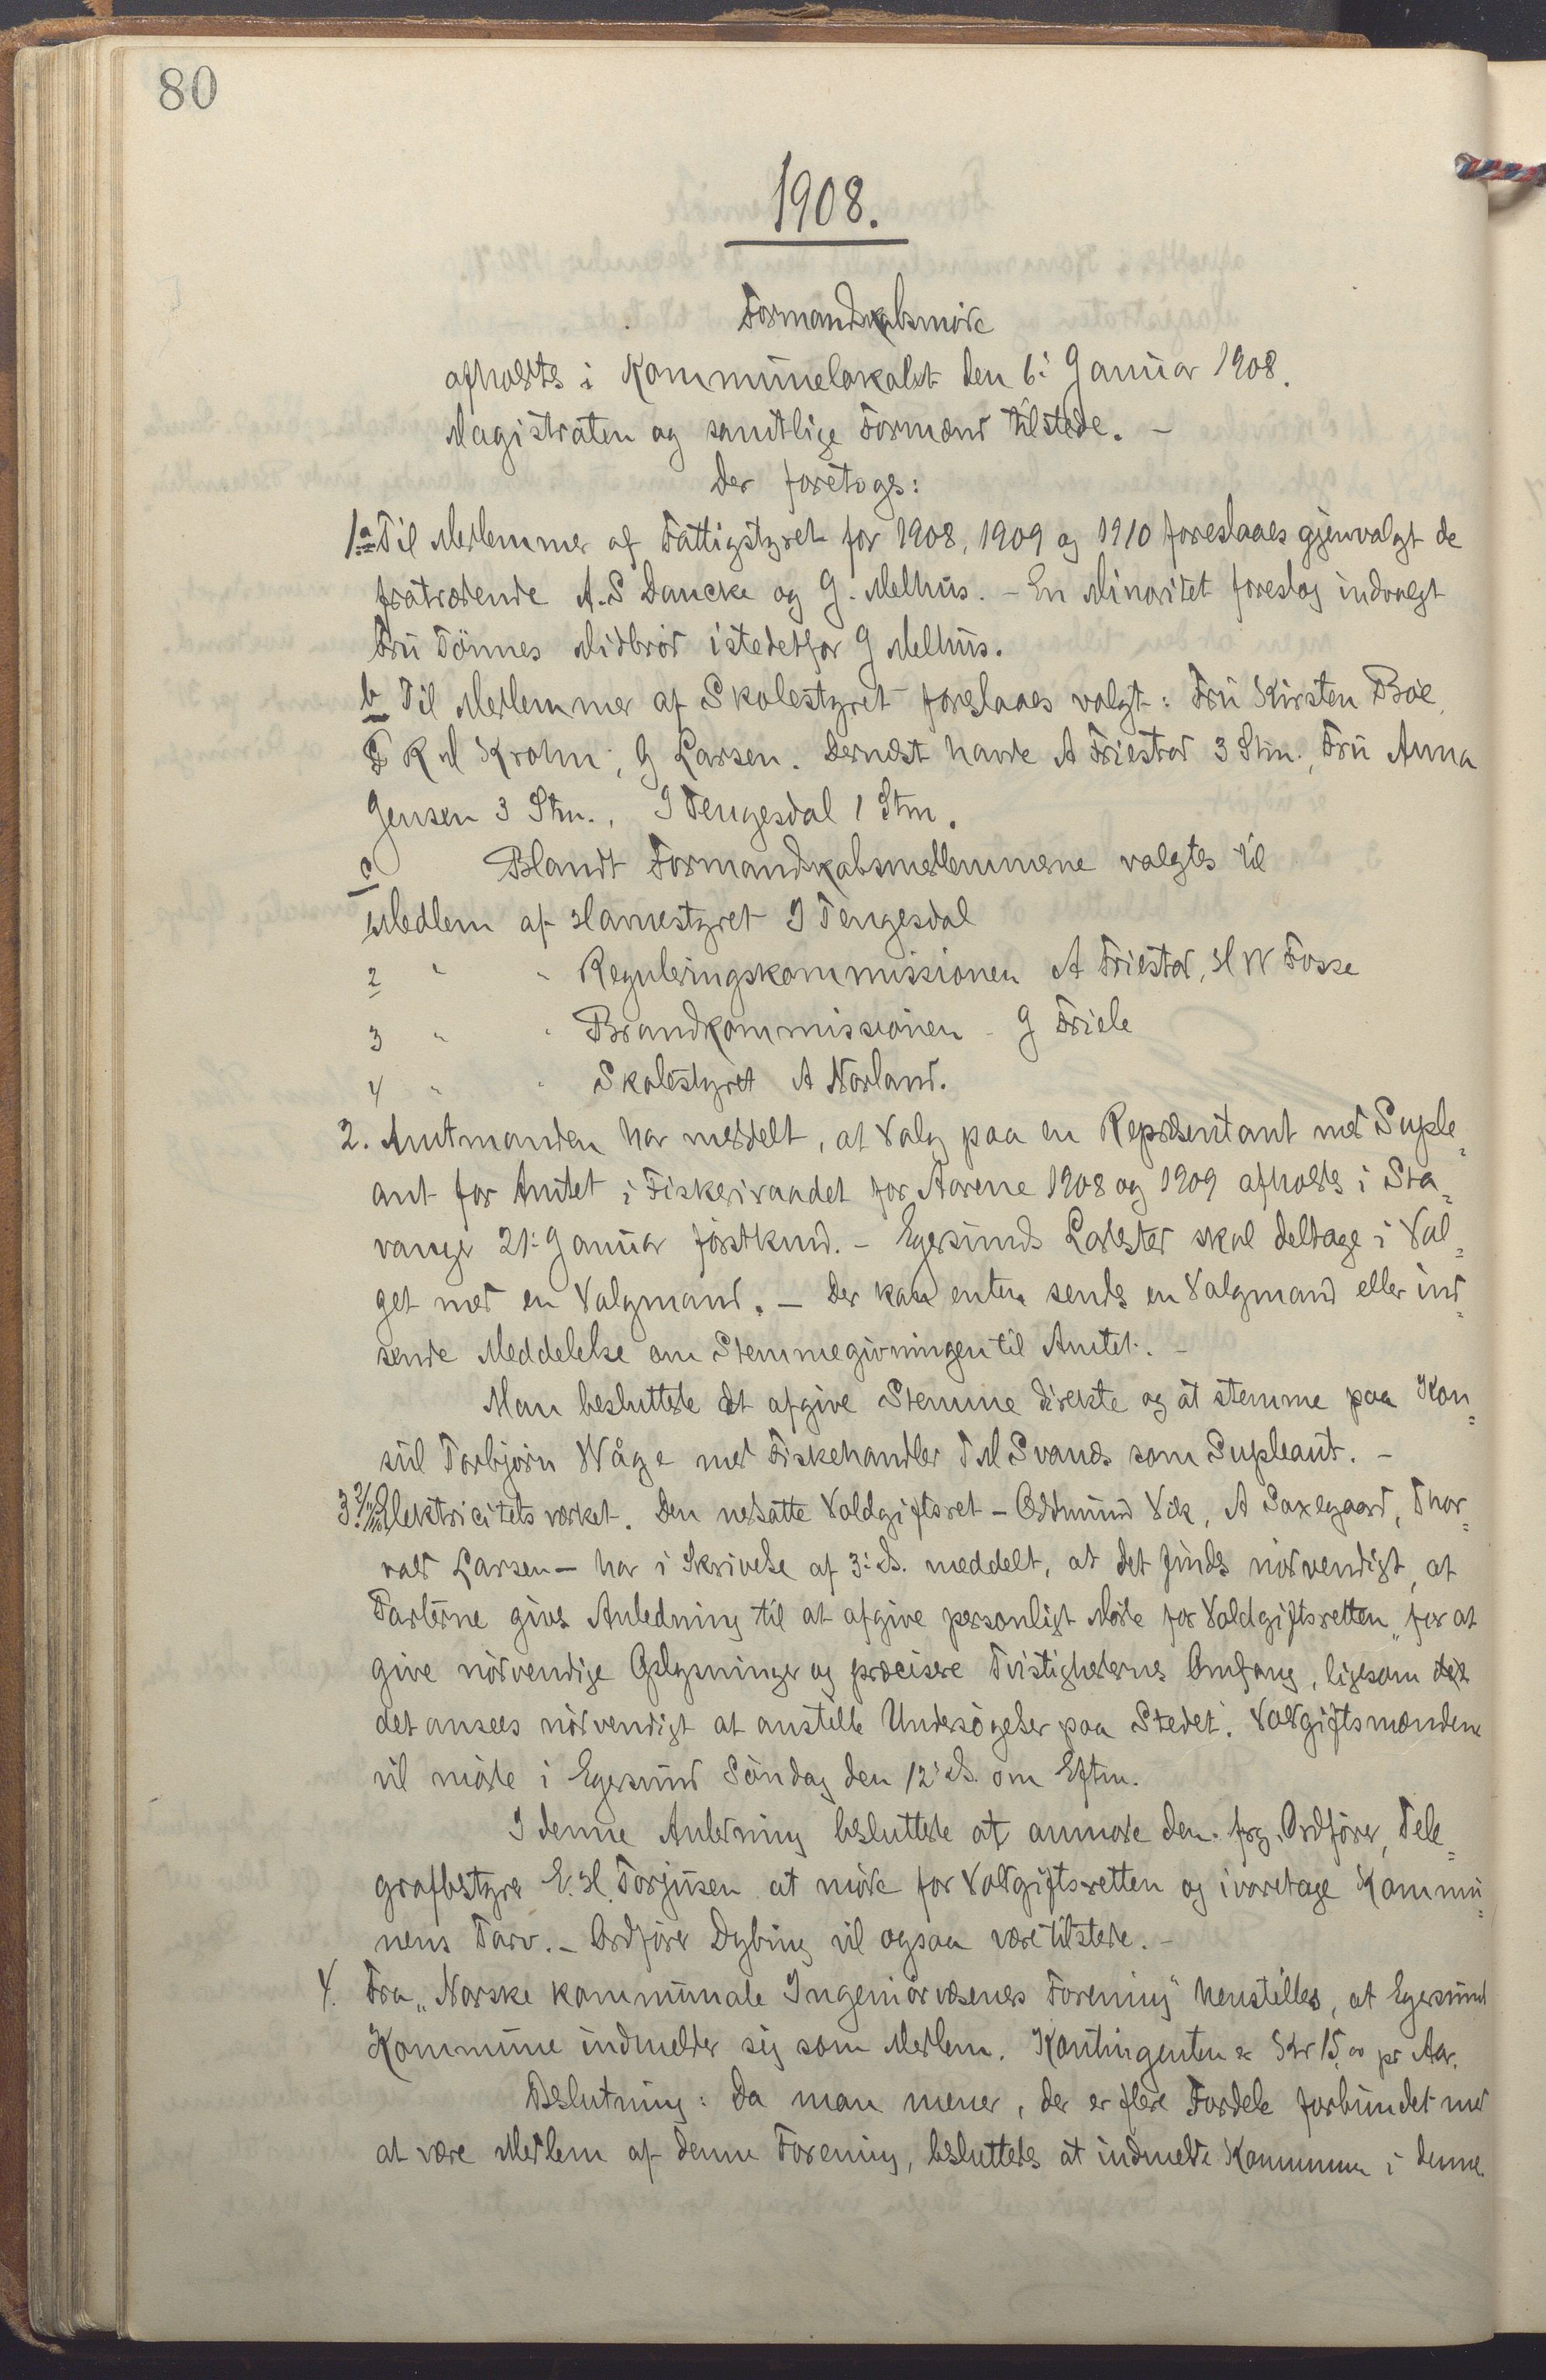 80
1908.
Formandskabsmöde
afholdtes i Kommunelokalet den 6: Januar 1908.
Magistraten og samtlige Formænd tilstede. -
Der foretoges:
1. a Til Medlemmer af Fattigstyret for 1908, 1909 og 1910 foreslaaes gjenvalgt de
fratrædende A. S Dancke og G. Melhus. - En Minoritet foreslog indvalgt
Fru Tönnes Midbröd istedetfor G Melhus.
b Til Medlemmer af Skolestyret foreslaaes valgt: Fru Kirsten Böe,
R M Krohn, G Larsen. Dernæst havde A Friestad 3 Stm., Fru Anna
Jensen 3 Stm., I Tengesdal 1 Stm.
c Blandt Formandskabsmedlemmerne valgtes til
Medlem af Havnestyret I Tengesdal
2 " " Reguleringskommissionen A Friestad, H W Fosse
3 " " Brandkommissionen - G Friele
4 " " Skolestyret A Norland.
2. Amtmanden har meddelt, at Valg paa en Repræsentant med Suple=
ant for Amtet i Fiskeriraadet for Aarene 1908 og 1909 afholdes i Sta=
vanger 21: Januar förstkmd. - Egersunds Ladested skal deltage i Val=
get med en Valgmand. - Der kan enten sendes en Valgmand eller ind=
sende Meddelelse om Stemmegivningen til Amtet. -
Man besluttede at afgive Stemme direkte og at stemme paa Kon=
sul Torbjörn Wåge med Fiskehandler T M Svanes som Supleant. -
3. Elektricitetsværket. Den nedsatte Voldgiftsret - Oddmund Vik, A Saxegaard, Thor=
vald Larsen - har i Skrivelse af 3: ds. meddelt, at det findes nödvendigt, at
Parterne gives Anledning til at afgive personligt Möde for Voldgiftsretten „for at
give nödvendige Oplysninger og præcisere Tvistighedernes Omfang, ligesom
det ansees nödvendigt at anstille Undersögelser paa Stedet". Voldgiftsmændene
vil möde i Egersund Söndag den 12: ds. om Eftm.
I denne Anledning besluttede at anmode den frg. Ordförer, Tele=
grafbestyrer E. H. Torjusen at möde for Voldgiftsretten og ivaretage Kommu=
nens Tarv. - Ordförer Dybing vil ogsaa være tilstede. -
4. Fra „Norske kommunale Ingeniörvæseners Forening" henstilles, at Egersund
Kommune indmelder sig som Medlem. Kontingenten er Kr 15,00 pr Aar.
Beslutning: Da man mener, der er flere Fordele forbundet med
at være Medlem af denne Forening, besluttedes at indmelde Kommunen i denne.